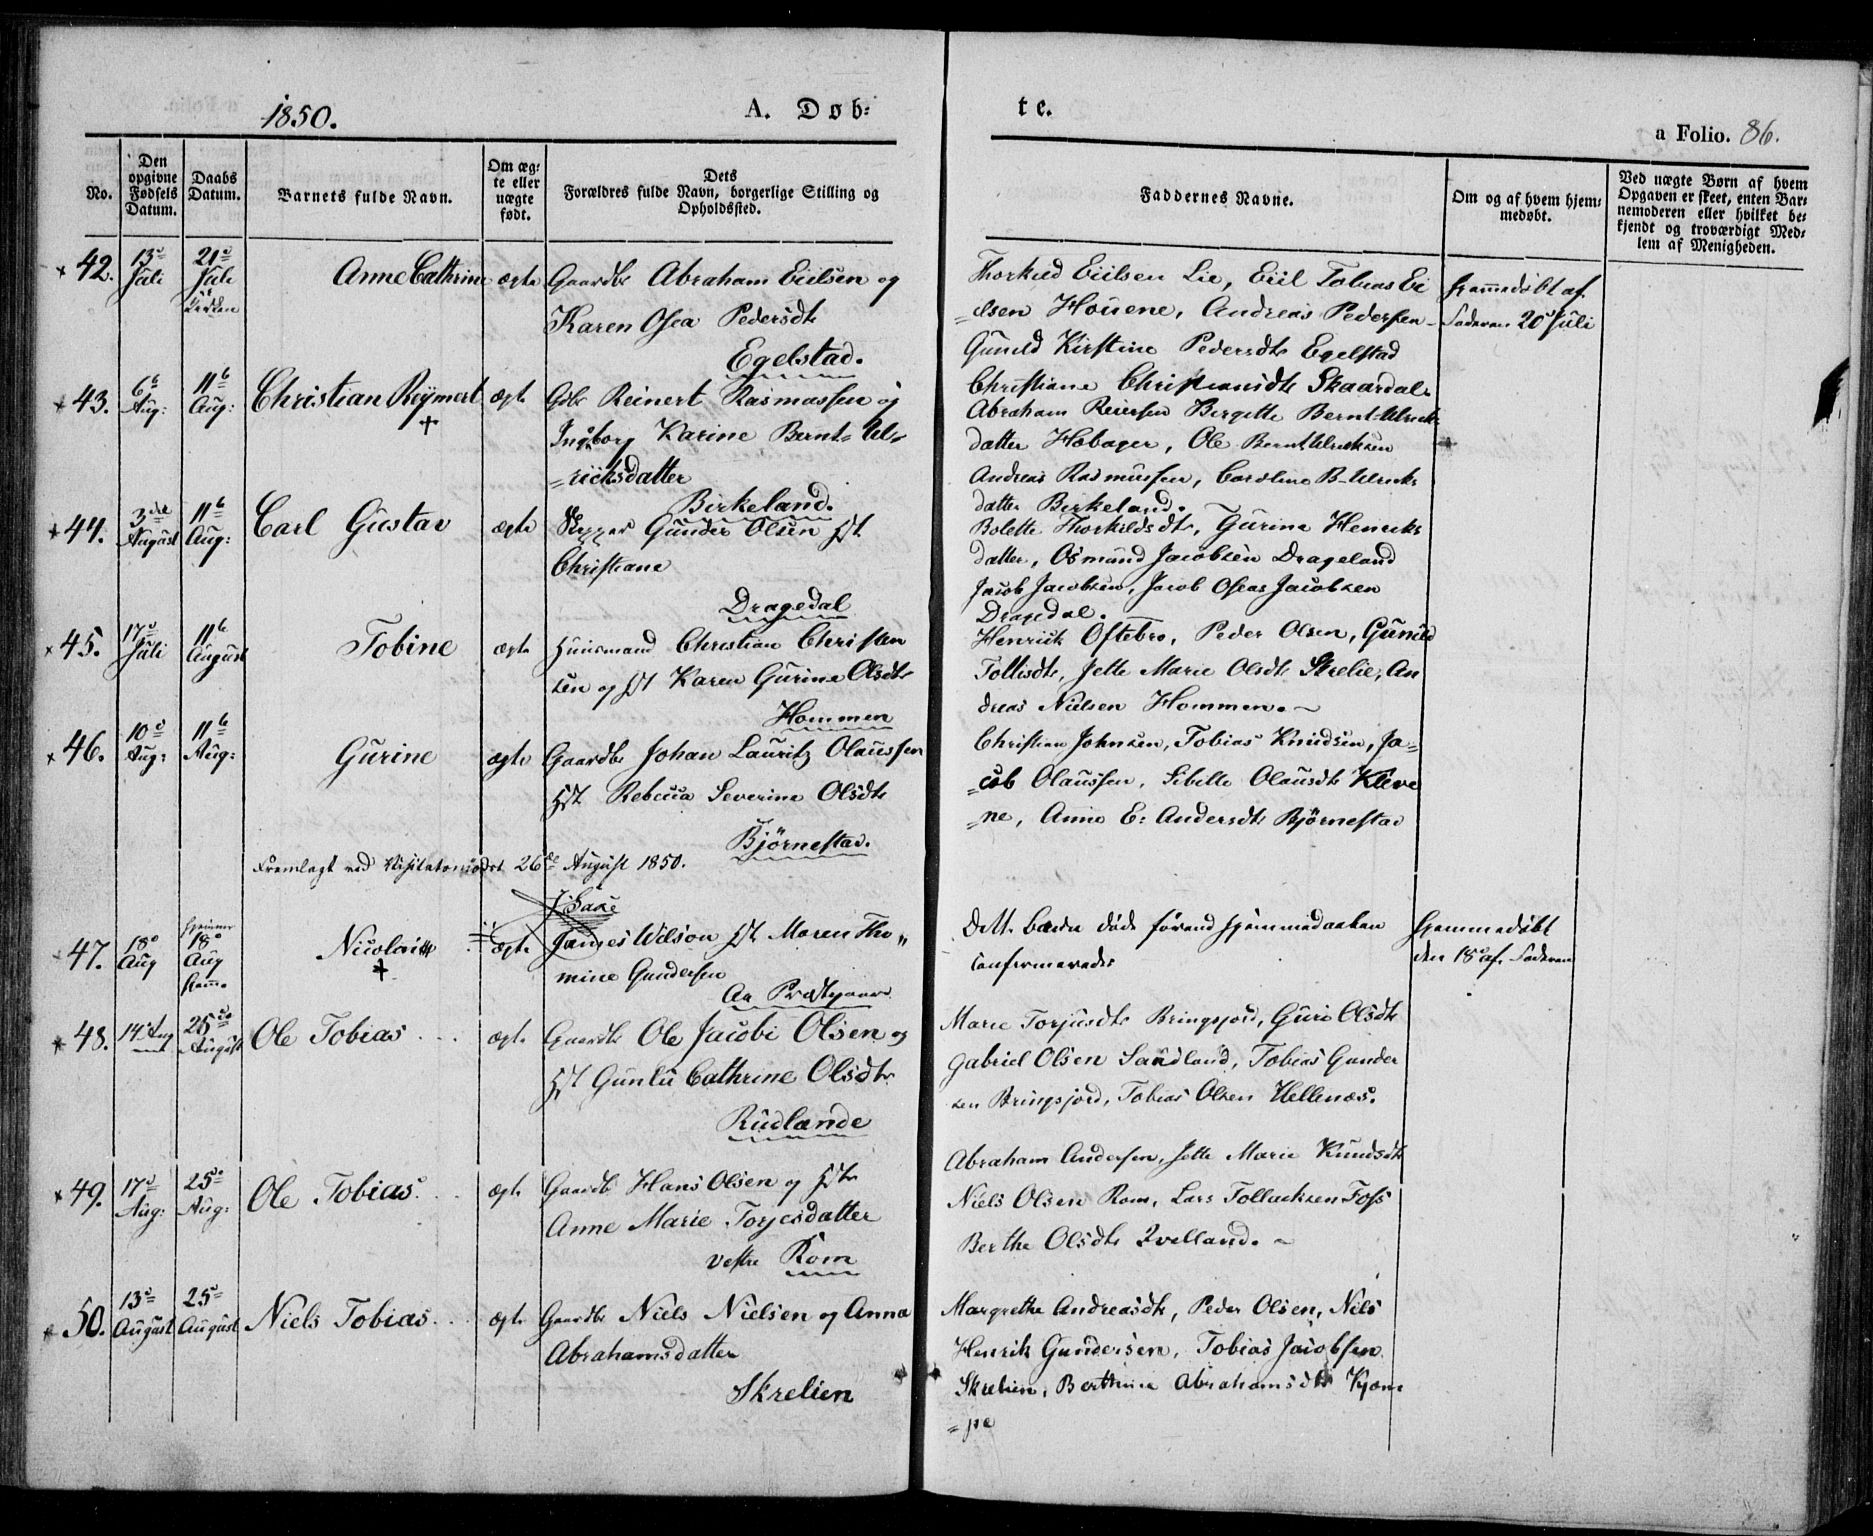 1850. A. Døb-
te.
a Folio. 86.
No.
Den opgivne Fødsels Datum.
Daabs Datum.
Barnets fulde Navn.
Om ægte eller uægte født.
Dets Forældres fulde Navn, borgerlige Stilling og Opholdssted.
Faddernes Navne.
Om og af hvem hjemmedøbt.
Ved uægte Børn af hvem Opgaven er skeet, enten Barnemoderen eller hvilket bekjendt og troværdigt Medlem af Menigheden.
42. 13d Juli 21d Juli Anne Cathrine ægte Gaardbr Abraham Eielsen og
Karen Osea Pedersdtr
Egelstad.
Thorkild Eielsen Lie, Eiil Tobias Ei
elsen Houene, Andreas Pedersen
Gunild Kirstine Pedersdtr Egelstad
Hjemmedøbt af
Faderen 20d Juli
43. 6t Aug: 11t Aug: Christian Reymert ægte Gdbr Reinert Rasmussen og
Ingborg Karine Bernt-Ul-
ricksdatter
Birkeland.
Christiane Christiansdtr Skaardal
Abraham Reiersen Birgitte Bernt-Ulrichs
datter Høbager, Ole Berntulricksen
Andreas Rasmussen, Caroline B-Ulrichs
datter Birkeland.
44. 3die August 11t Aug: Carl Gustav ægte Skipper Gunder Olsen Hst
Christiane
Dragedal
Bolette Thorkildsdtr, Gurine Henriks
datter, Osmund Jacobsen Drageland
Jacob Jacobsen, Jacob Oseas Jacobsen
Dragedal.
45. 17d Juli 11t August Tobine ægte Huusmand Christian Christen
sen og Hst Karen Gurine Olsdtr
Hommen
Henrik Oftebro, Peder Olsen, Gunild
Tollisdtr, Jette Marie Olsdtr Skrelie, An
dreas Nielsen Hommen.
46. 10d Aug: 11t Aug: Gurine ægte Gaardbr Johan Lauritz Olaussen
Hst Rebecca Severine Olsdtr
Bjørnestad.
Christian Johnsen, Tobias Knudsen, Ja-
cob Olaussen, Sibille Olausdtr Kleve
ne, Anne E: Andersdtr Bjørnestad
Fremlagt ved Visitatsmødet 26de August 1850.
47. 18d Aug 18d Aug hjem. Nicolai ægte James Wilson Hst Maren Tho-
mine Gundersen
Aa Prstgaard
Dette Barn døde førend Hjemmedaaben
confirmeredes
Hjemmedøbt
den 18d af Faderen
48. 14d Aug 25de August Ole Tobias ægte Gaardbr Ole Jacobi Olsen og
Hst Gunlu Cathrine Olsdtr
Rudlande
Marie Torjusdtr Bringsjord, Guri Olsdtr
Gabriel Olsen Sandland, Tobias Gunder
sen Bringsjord, Tobias Olsen Hellenæs.
49. 17d Aug: 25d Aug: Ole Tobias ægte Gaardbr Hans Olsen og Hstr
Anne Marie Torjesdatter
vestre Rom
Abraham Andersen, Jette Marie Knudsdtr
Niels Olsen Rom, Lars Tollacksen Foss
Berthe Olsdtr Qvelland.
50. 13d August 25d August Niels Tobias ægte Gaardbr Niels Nielsen og Anna
Abrahamsdatter
Skrelien
Margrethe Andreasdtr, Peder Olsen, Niels
Henrik Gundersen, Tobias Jacobsen
Skrelien, Berthine Abrahamsdtr Kjøm
-pe